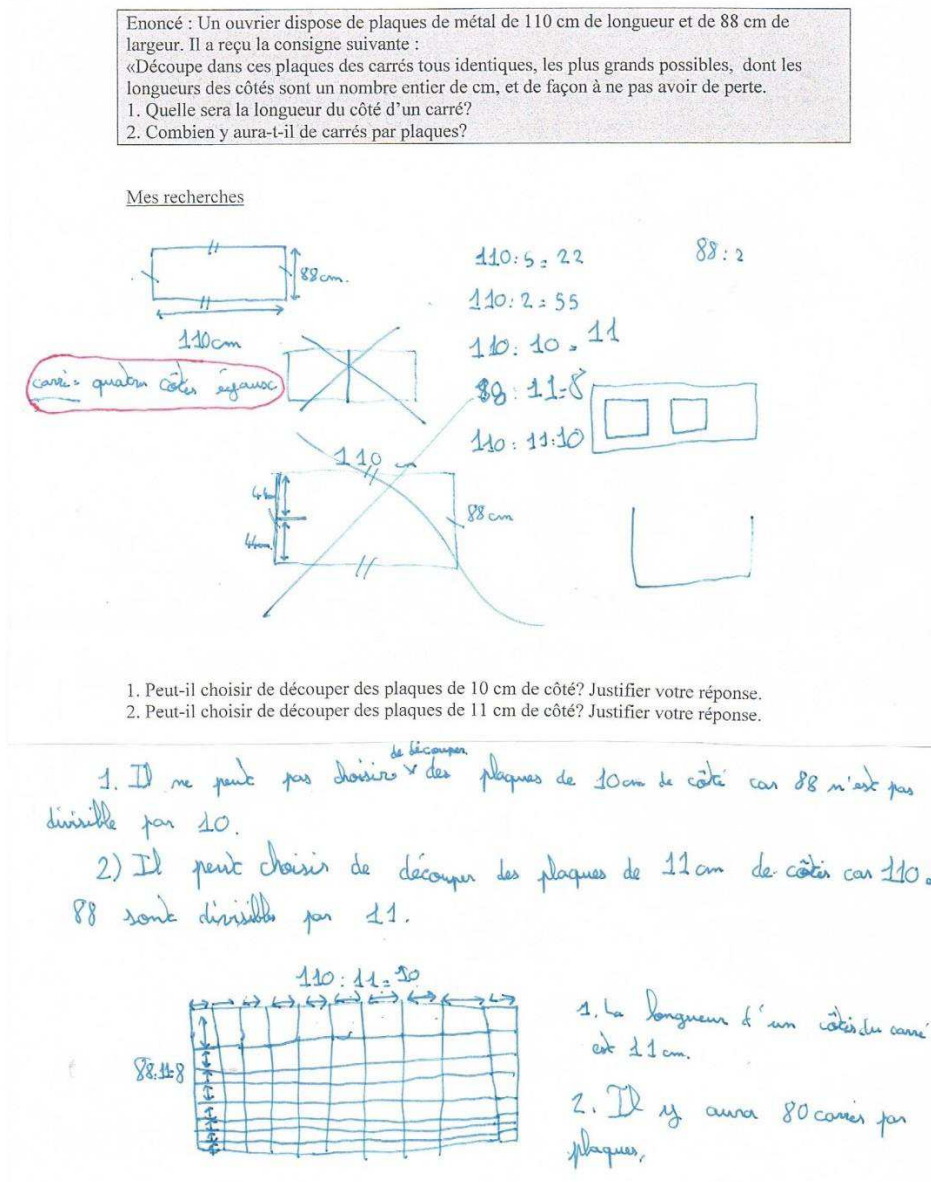 Enoncé : Un ouvrier dispose de plaques de métal de 110 cm de longueur et de 88 cm de
largeur. Il a reçu la consigne suivante :
«Découpe dans ces plaques des carrés tous identiques, les plus grands possibles, dont les
longueurs des côtés sont un nombre entier de cm, et de façon à ne pas avoir de perte.
1. Quelle sera la longueur du côté d'un carré?
2. Combien y aura-t-il de carrés par plaques?
Mes recherches
88 cm.
110 cm
carré = quatre côtés égaux
110 : 5 = 22
88 : 2
110 : 2 = 55
110 : 10 = 11
88 : 11 = 8
110 : 11 = 10
110
44
44cm
88 cm
1. Peut-il choisir de découper des plaques de 10 cm de côté? Justifier votre réponse.
2. Peut-il choisir de découper des plaques de 11 cm de côté? Justifier votre réponse.
de découper
1. Il ne peut pas choisir des plaques de 10 cm de côté car 88 n'est pas
divisible par 10.
2) Il peut choisir de découper des plaques de 11 cm de côtés car 110
88 sont divisibles par 11.
110 : 11 = 10
88:11=8
1. La longueur d'un côtés du carré
est 11 cm.
2. Il y aura 80 carrés par
plaques.